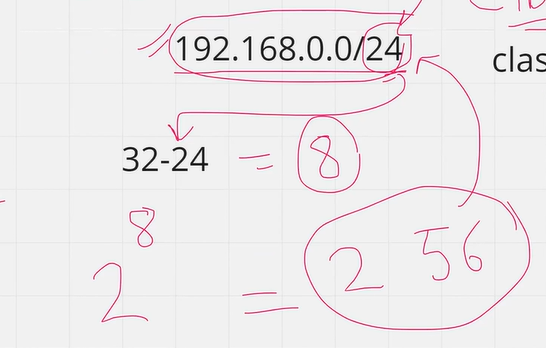 192.168.0.0/24
clas
32-24 = 8
2⁸ = 256